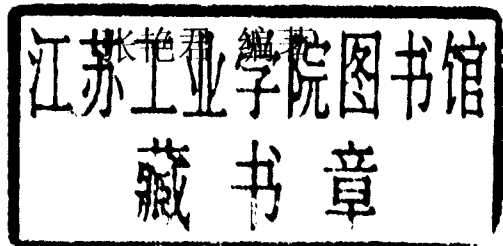 张艳君 编著
江苏工业学院图书馆
藏书章